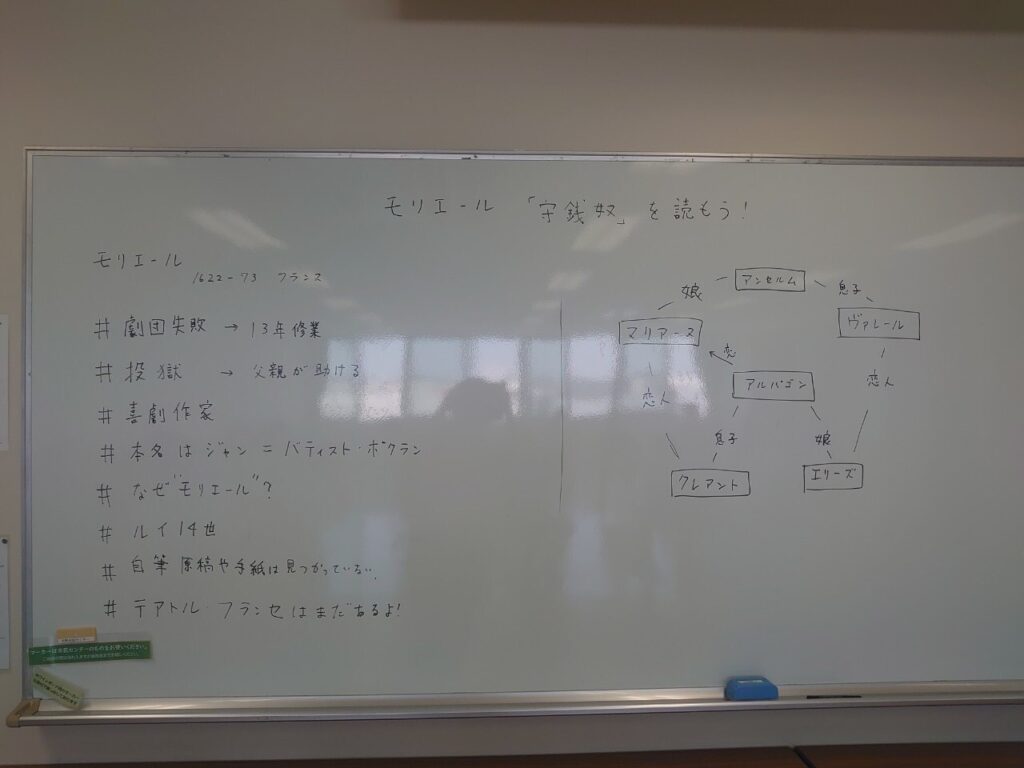 モリエール 「守銭奴」を読もう!
モリエール
1622-73 フランス
# 劇団失敗 → 13年修業
# 投獄 → 父親が助ける
# 喜劇作家
# 本名はジャン=バティスト・ポクラン
# なぜ"モリエール"?
# ルイ14世
# 自筆原稿や手紙は見つかっていない.
# テアトル・フランセはまだあるよ!
アンセルム
娘
息子
マリアーヌ
ヴァレール
恋
アルパゴン
恋人
恋人
息子
娘
クレアント
エリーズ
マーカーは市民センターのものをお使いください。